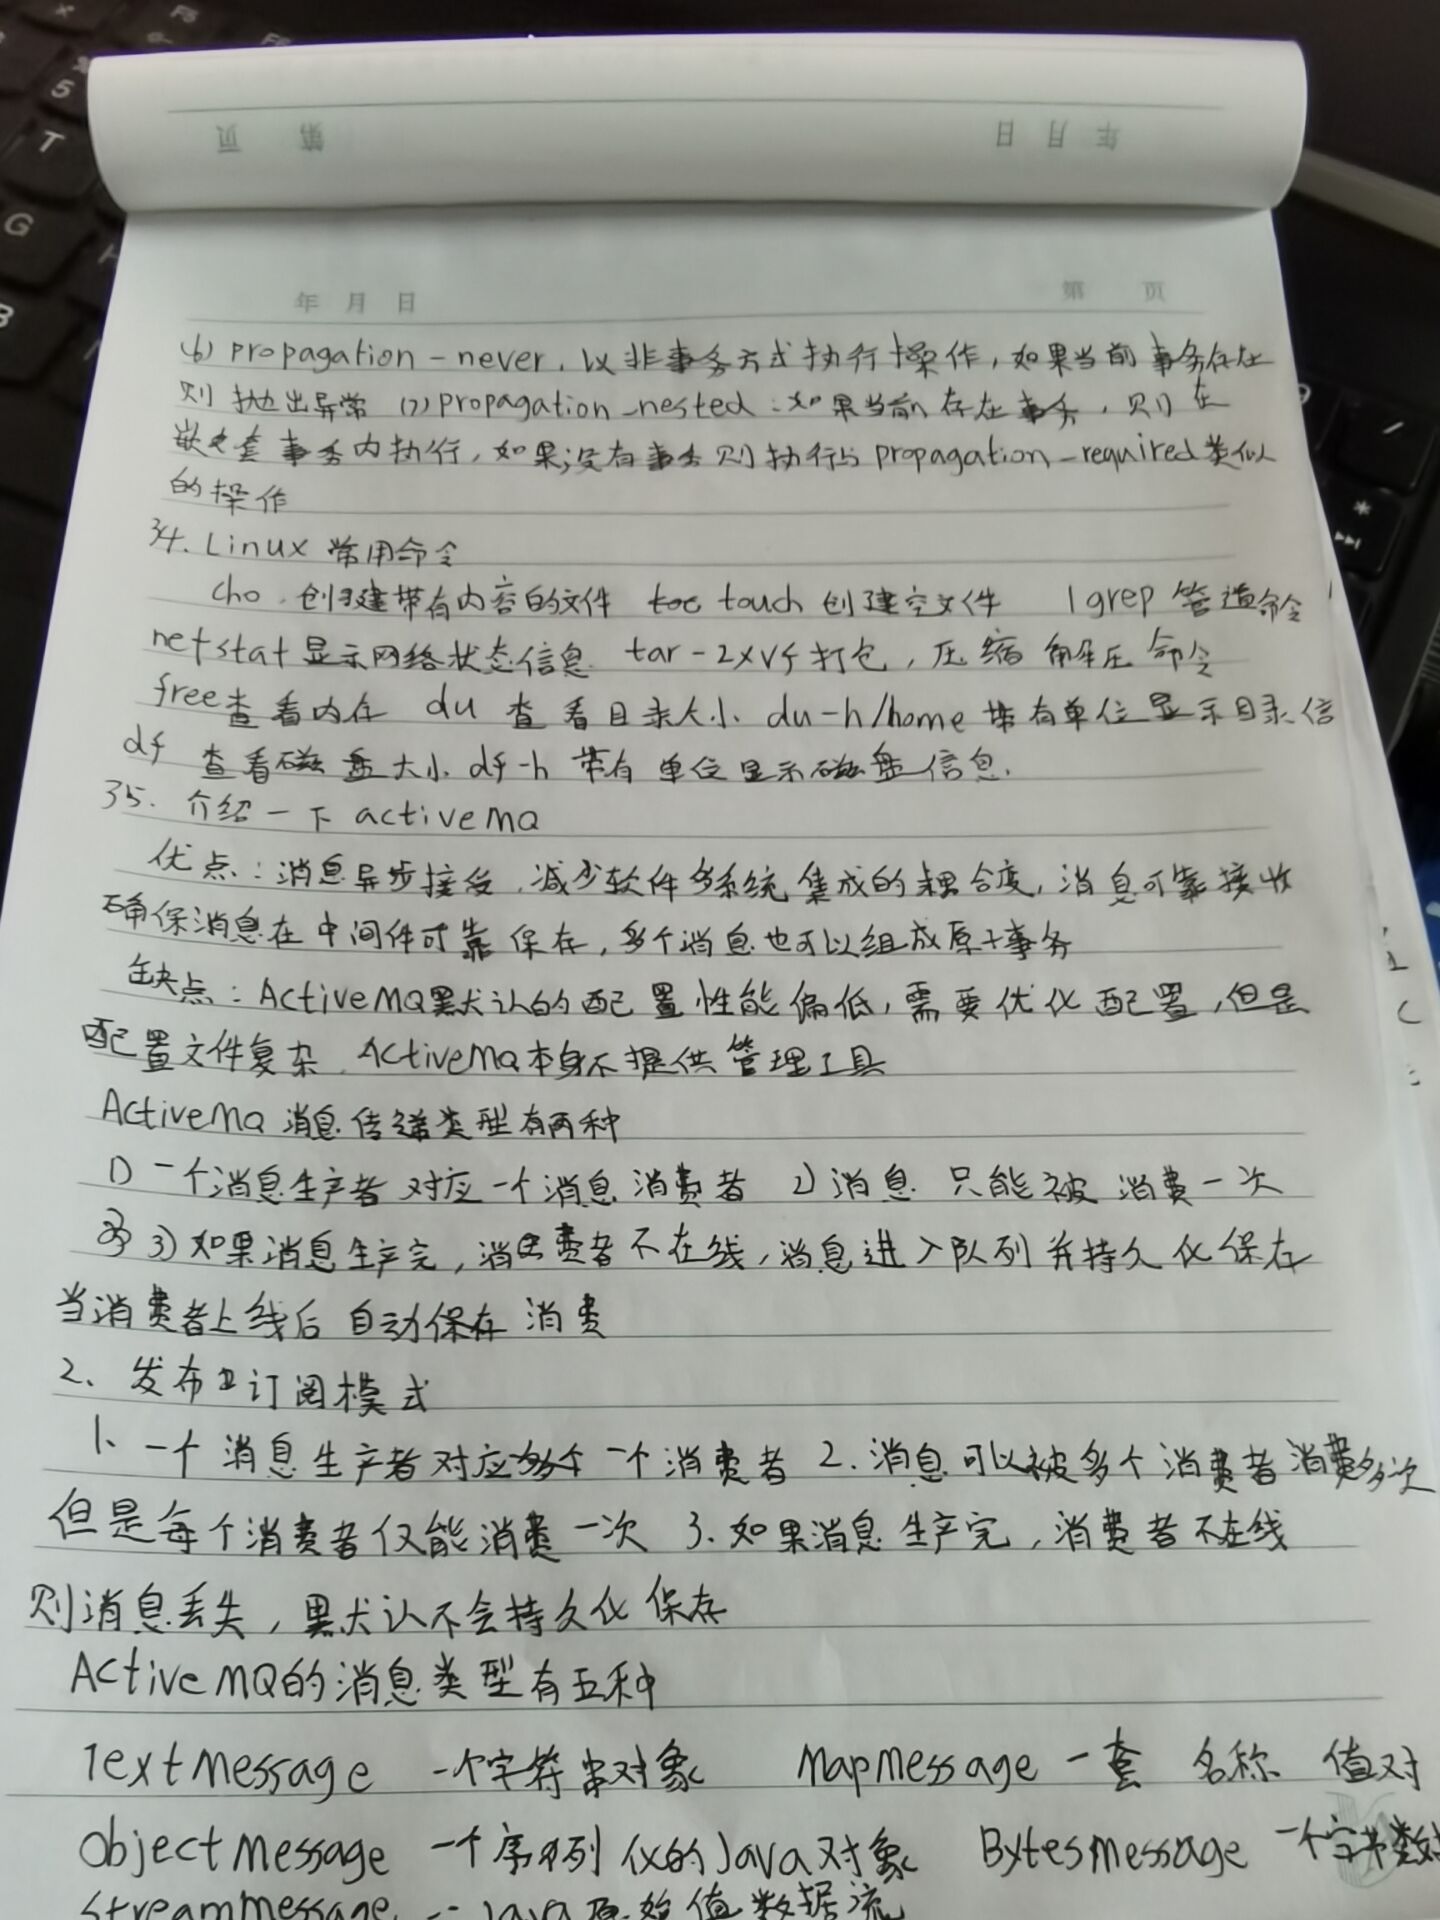 第 页
年 月 日
年 月 日 第 页
(6) propagation-never,以非事务方式执行操作,如果当前事务存在
则抛出异常 (7) propagation_nested:如果当前存在事务,则在
嵌套事务内执行,如果没有事务则执行与propagation_required类似
的操作
34. Linux 常用命令
cho 创建带有内容的文件 touch 创建空文件 |grep 管道命令
netstat显示网络状态信息 tar-zxvf打包,压缩 解压命令
free查看内存 du 查看目录大小 du-h/home 带有单位显示目录信
df 查看磁盘大小 df-h 带有单位显示磁盘信息.
35. 介绍一下 activeMQ
优点:消息异步接受,减少软件多系统集成的耦合度,消息可靠接收
确保消息在中间件可靠保存,多个消息也可以组成原子事务
缺点:ActiveMQ默认的配置性能偏低,需要优化配置,但是
配置文件复杂,ActiveMQ本身不提供管理工具
ActiveMQ 消息传递类型有两种
1) 一个消息生产者对应一个消息消费者 2) 消息只能被消费一次
3) 如果消息生产完,消费者不在线,消息进入队列并持久化保存
当消费者上线后自动保存 消费
2、发布订阅模式
1、一个消息生产者对应一个消费者 2.消息可以被多个消费者消费多次
但是每个消费者仅能消费一次 3.如果消息生产完,消费者不在线
则消息丢失,默认不会持久化保存
ActiveMQ的消息类型有五种
TextMessage 一个字符串对象 MapMessage 一套名称 值对
ObjectMessage 一个序列化的Java对象 BytesMessage 一个字节数
StreamMessage -- Java原始值数据流